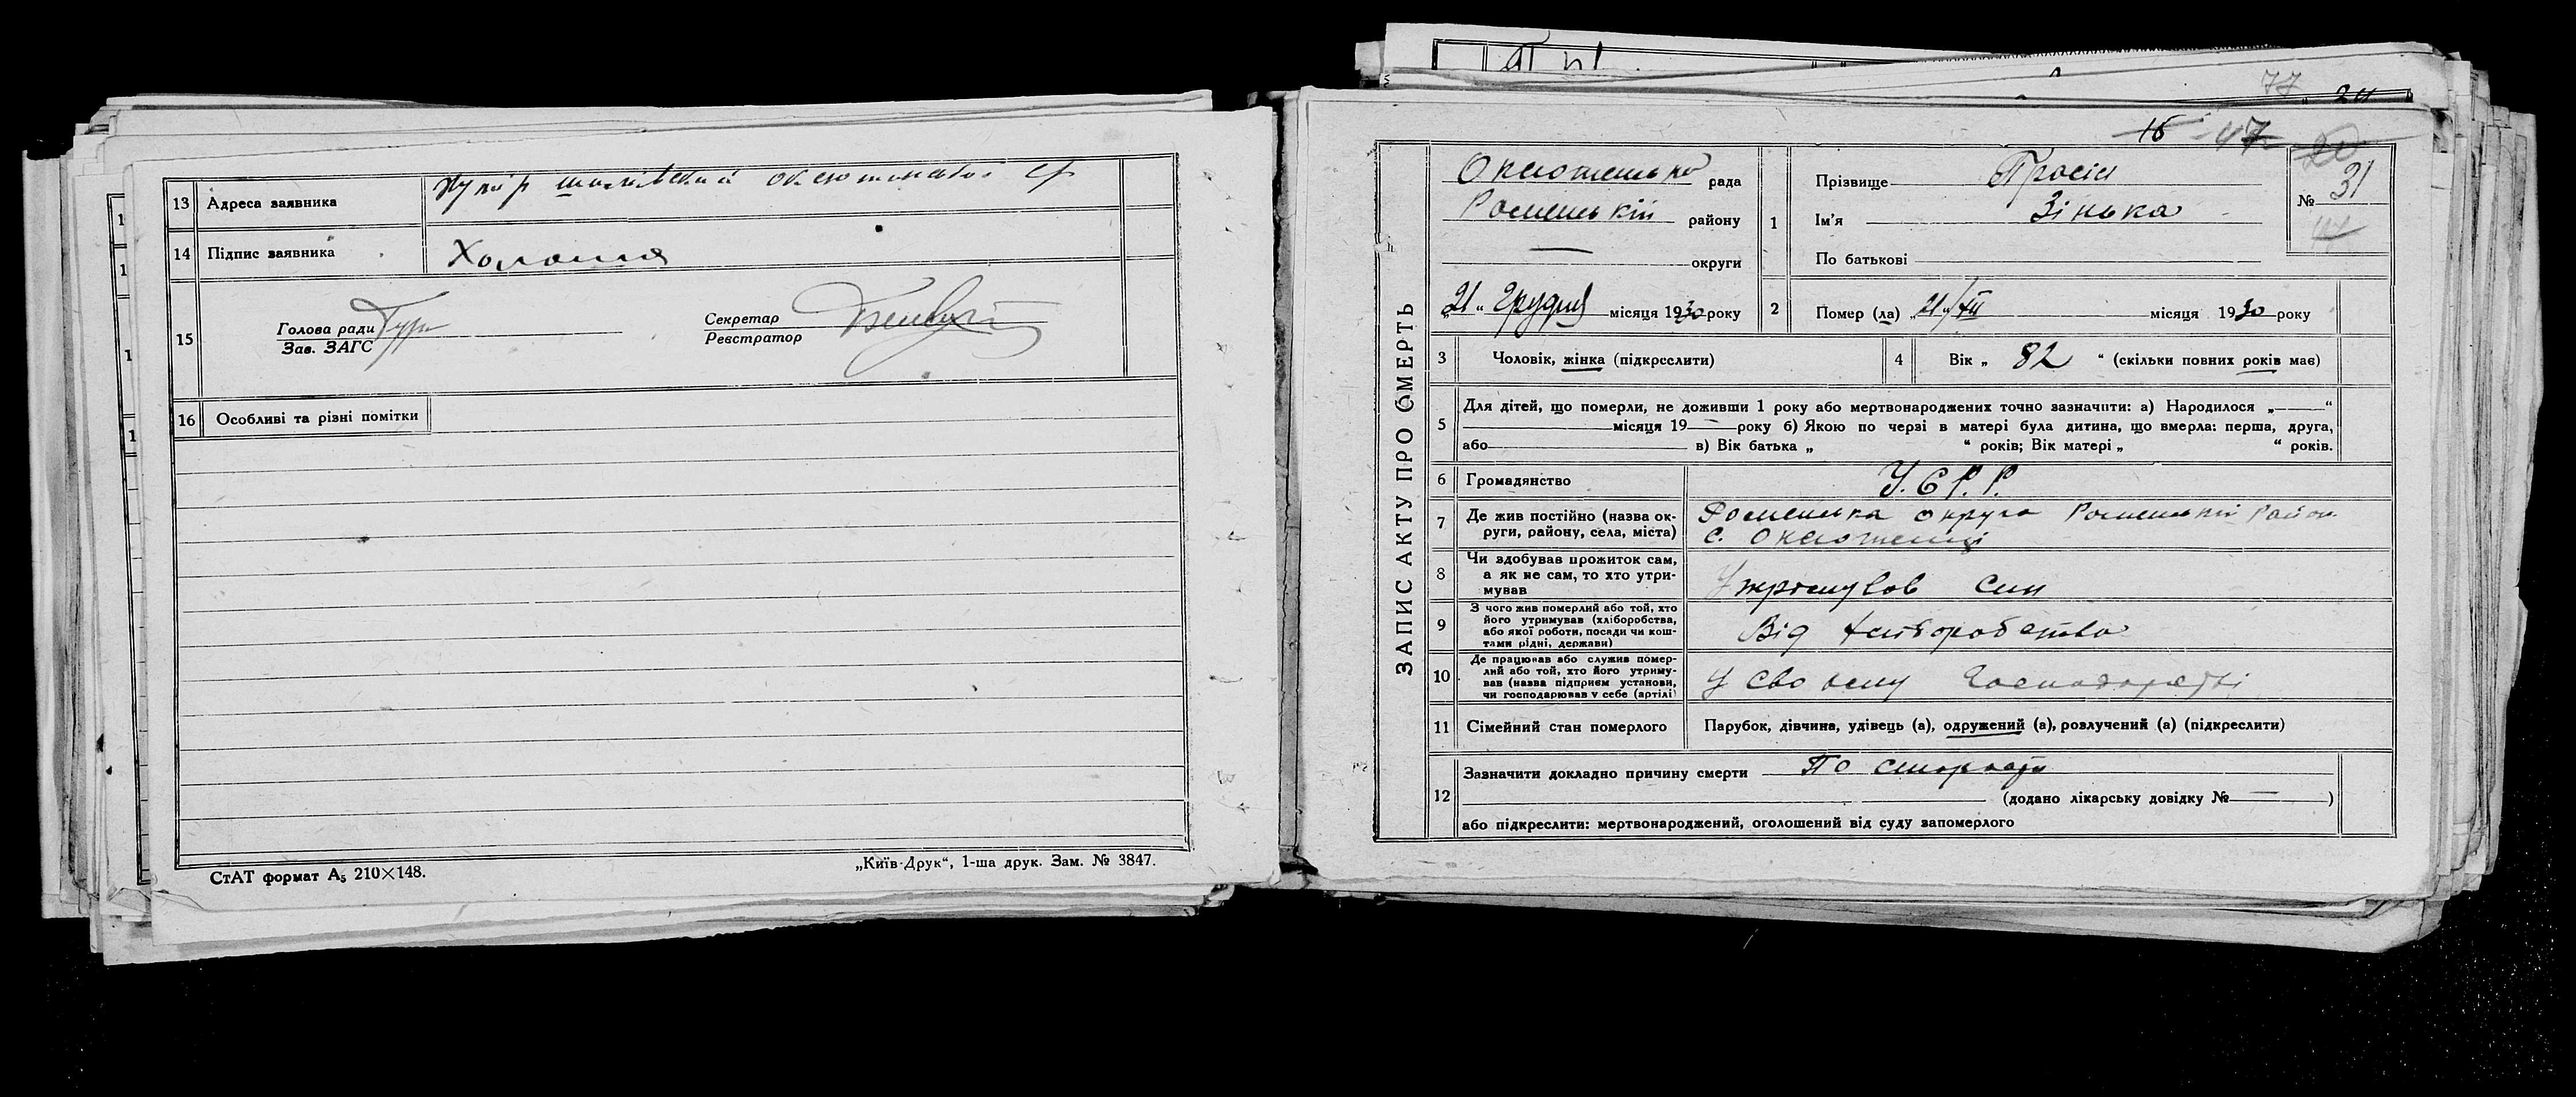 13 Адреса заявника хутір
14 Підпис заявника
15 Голова ради
Зав. ЗАГС
Секретар
Реєстратор
16 Особливі та різні помітки
СтАТ формат А₅ 210×148.
„Київ-Друк“, 1-ша друк. Зам. № 3847.
77
16 47
ЗАПИС АКТУ ПРО СМЕРТЬ
рада
Роменський району
— округи
„21“ Грудня місяця 1930 року
1 Прізвище
Ім’я Зінька
По батькові
№ 31
2 Помер (ла) „21“/XII місяця 1930 року
3 Чоловік, жінка (підкреслити)
4 Вік „ 82 “ (скільки повних років має)
5 Для дітей, що померли, не доживши 1 року або мертвонароджених точно зазначити: а) Народилося „—“
місяця 19— року б) Якою по черзі в матері була дитина, що вмерла: перша, друга,
або в) Вік батька „ “ років; Вік матері „ “ років.
6 Громадянство У.С.Р.Р.
7 Де жив постійно (назва ок-
руги, району, села, міста)
Роменська округа Роменський район
с. Оксютинці
8 Чи здобував прожиток сам,
а як не сам, то хто утри-
мував
син
9 З чого жив померлий або той, хто
його утримував (хліборобства,
або якої роботи, посади чи кош-
тами рідні, держави)
Від хліборобства
10 Де працював або служив помер-
лий або той, хто його утриму-
вав (назва підприєм установи,
чи господарював у себе (артілі)
У своєму господарстві
11 Сімейний стан померлого Парубок, дівчина, удівець (а), одружений (а), розлучений (а) (підкреслити)
12 Зазначити докладно причину смерти По старости
(додано лікарську довідку № — )
або підкреслити: мертвонароджений, оголошений від суду запомерлого